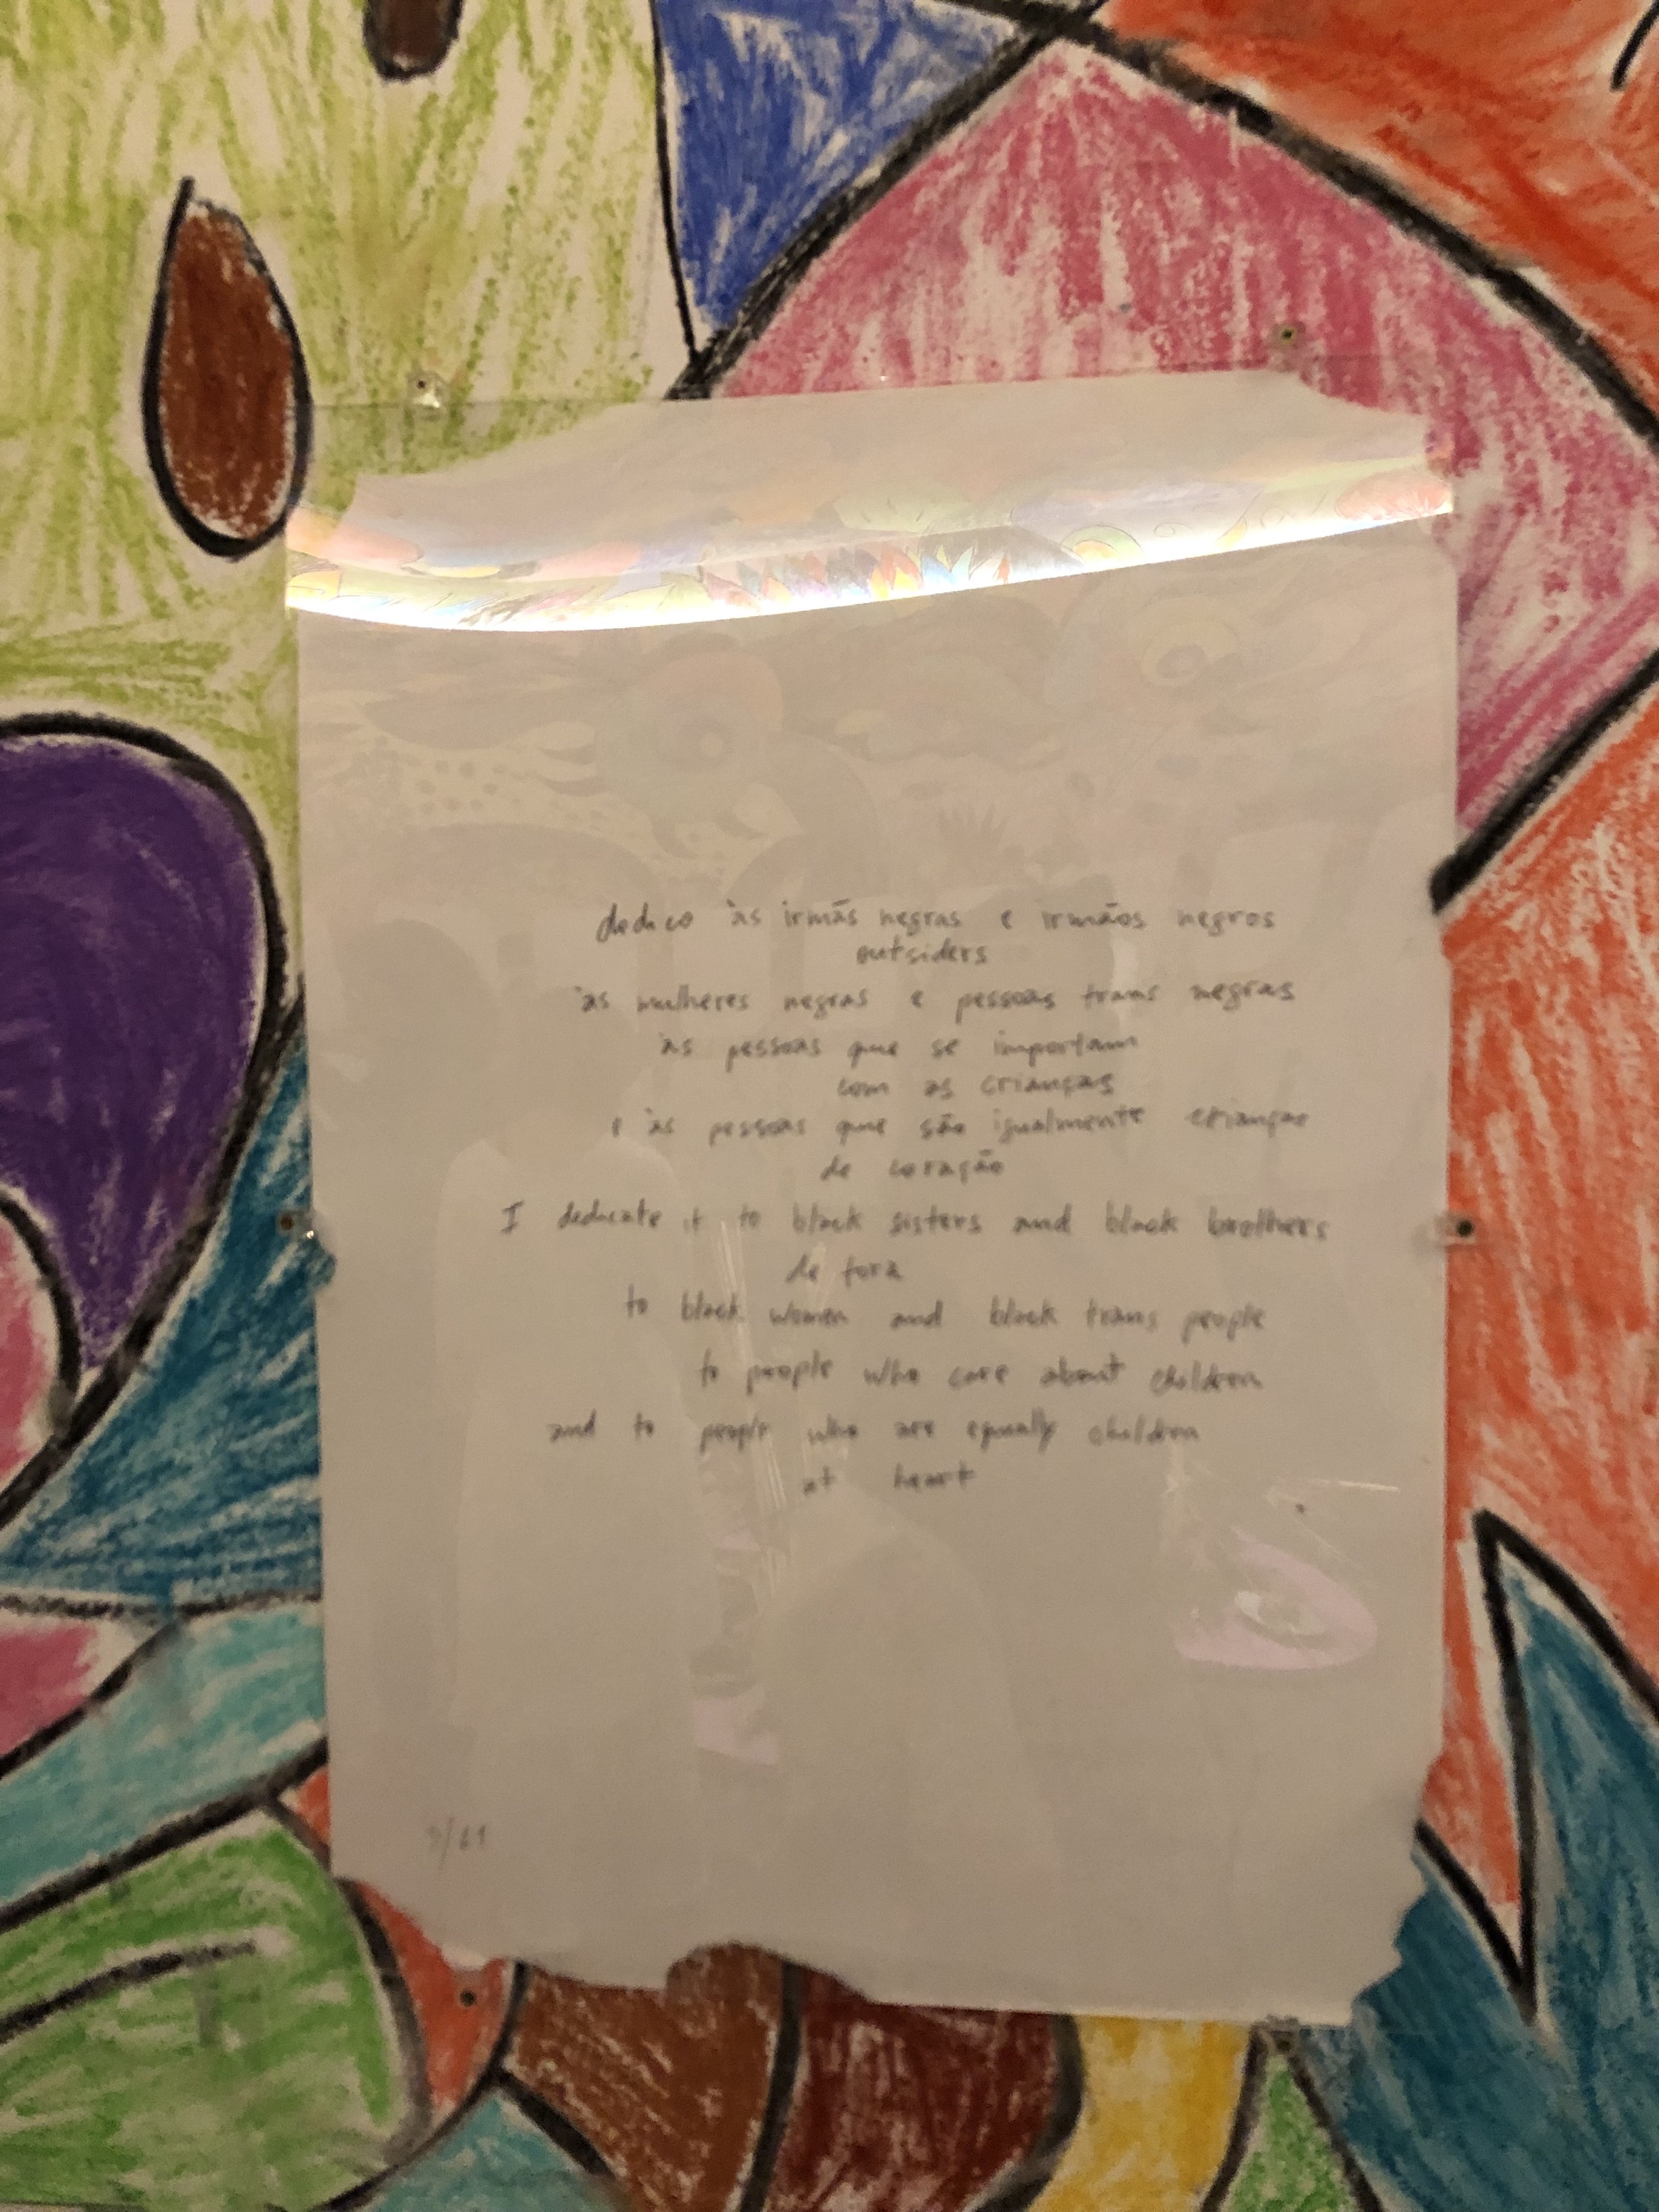 dedico às irmãs negras e irmãos negros
outsiders
às mulheres negras e pessoas trans negras
às pessoas que se importam
com as crianças
e às pessoas que são igualmente crianças
de coração
I dedicate it to black sisters and black brothers
de fora
to black women and black trans people
to people who care about children
and to people who are equally children
at heart